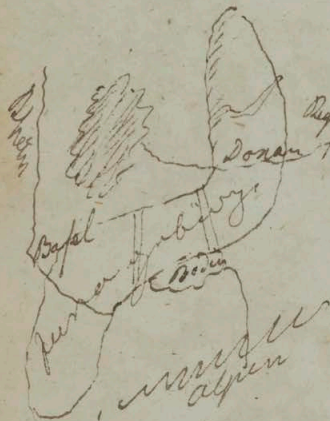 Rhein
Donau
Basel
Jura Gebirge
Boden
Alpen